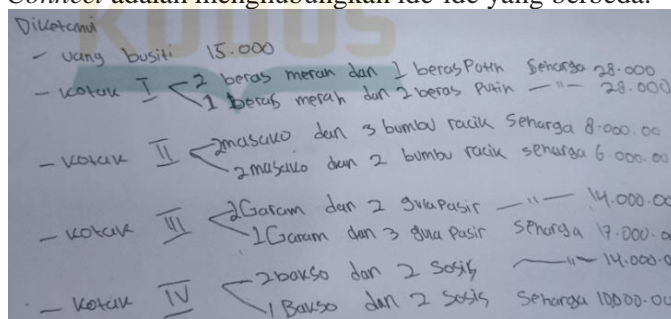 Connect adalah menghubungkan ide-ide yang berbeda.
Diketahui
- uang busiti 15.000
- Kotak I 2 beras merah dan 1 beras Putih Seharga 28.000
1 beras merah dan 2 beras Putih —"— 28.000
- Kotak II 2masako dan 3 bumbu racik Seharga 8.000.00
2masako dan 2 bumbu racik seharga 6.000.00
- Kotak III 2Garam dan 2 gula Pasir —"— 14.000.00
1Garam dan 3 gula Pasir Seharga 17.000.0
- Kotak IV 2bakso dan 2 Sosis —"— 14.000.0
1 Bakso dan 2 Sosis Seharga 10.000.00